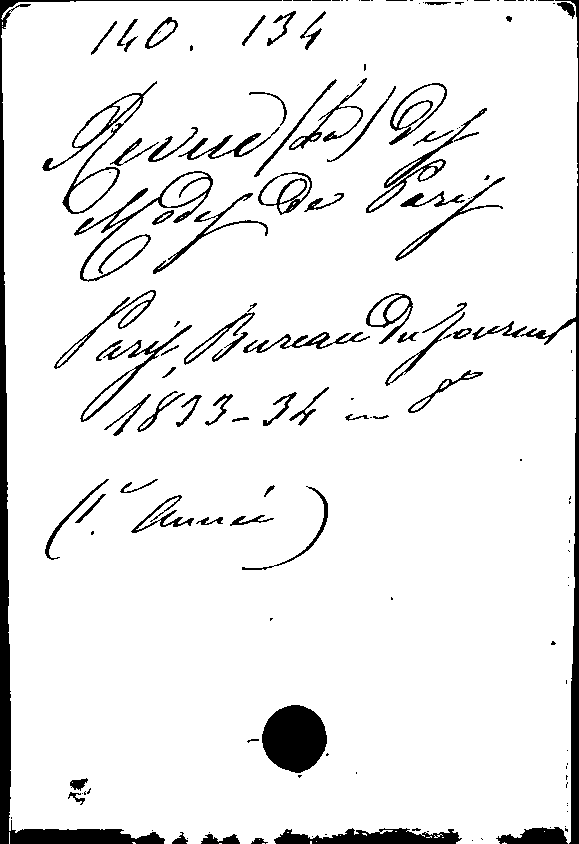 140. 134
Revue (La) des
Modes de Paris
Paris, Bureau du Journal
1833-34 in 8º
(1e. Année)